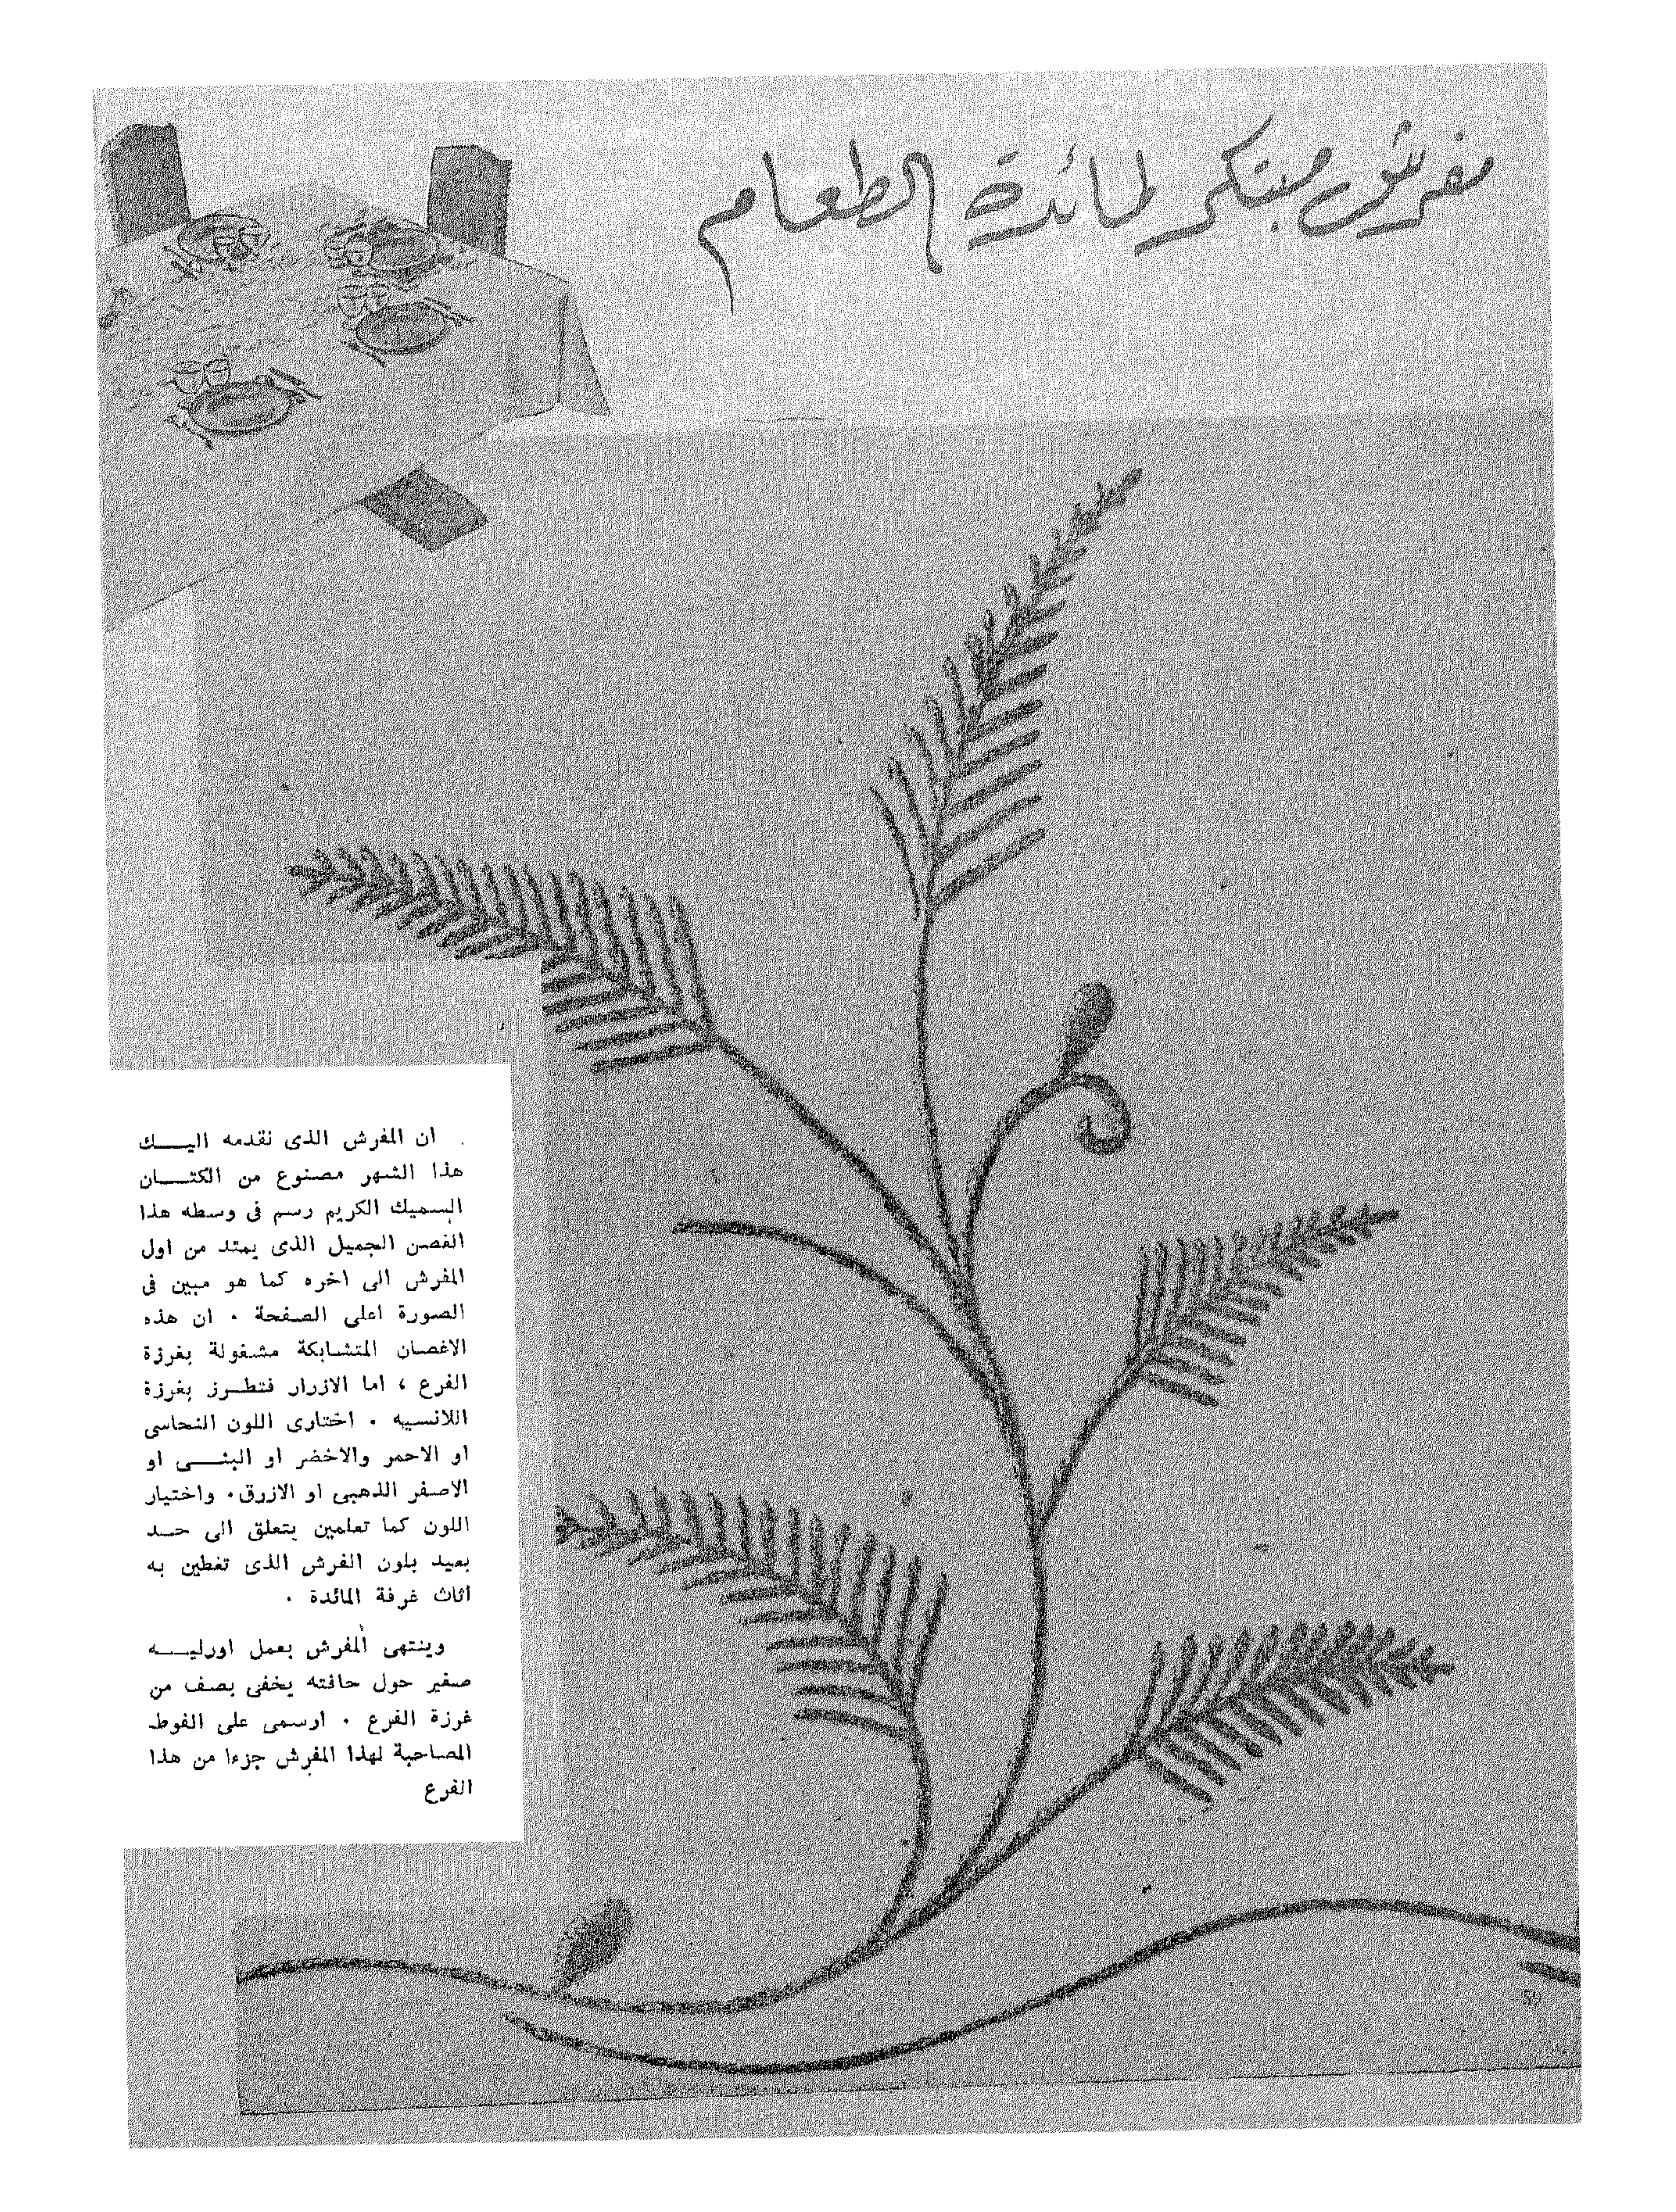 مفرش مبتكر لمائدة الطعام
ان المفرش الذى نقدمه اليـــك
هذا الشهر مصنوع من الكتـــان
السميك الكريم رسم فى وسطه هذا
الغصن الجميل الذى يمتد من اول
المفرش الى اخره كما هو مبين فى
الصورة اعلى الصفحة . ان هذه
الاغصان المتشابكة مشغولة بغرزة
الفرع ، اما الازرار فتطـرز بغرزة
اللانسيه . اختارى اللون النحاسى
او الاحمر والاخضر او البنـــى او
الاصفر الذهبى او الازرق. واختيار
اللون كما تعلمين يتعلق الى حـد
بعيد بلون الفرش الذى تغطين به
اثاث غرفة المائدة .
وينتهى المفرش بعمل اورليـــه
صغير حول حافته يخفى بصف من
غرزة الفرع . ارسمى على الفوط
المصاحبة لهذا المفرش جزءا من هذا
الفرع